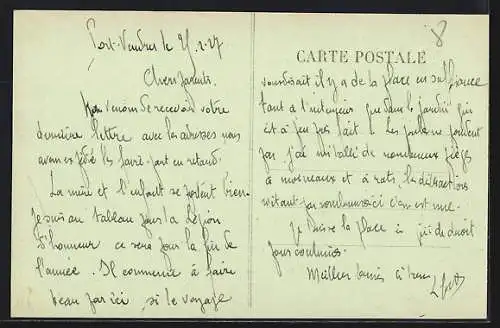 Port-Vendres le 25.2.27
Chers parents.
Nous venons de recevoir votre
dernière lettre avec les adresses nous
avons les faire-part en retard.
La mère et l'enfant se portent bien.
Je suis au tableau pour la Légion
d'honneur ce sera pour la fin de
l'année. Il commence à faire
beau par ici, si le voyage
8
CARTE POSTALE
il y a de la place en
tant à l'intérieur que dans le jardin qui
est à peu près fait. Les
pas j'ai installé de nombreux pièges
à moineaux et à rats, les distractions
par ici c'en est une.
Je laisse la place à qui de droit
pour continuer.
Meilleurs baisers à tous